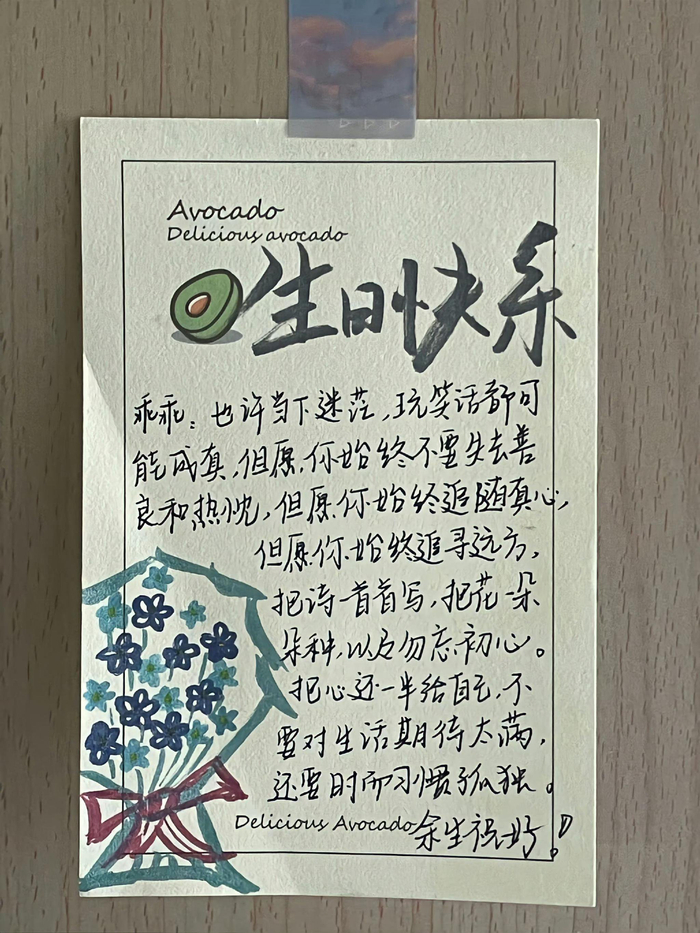 Avocado
Delicious avocado
生日快乐
乖乖：也许当下迷茫，玩笑话都可
能成真，但愿你始终不要失去善
良和热忱，但愿你始终追随真心，
但愿你始终追寻远方，
把诗一首首写，把花一朵
朵种，以及勿忘初心。
把心还一半给自己，不
要对生活期待太满，
还要时而习惯孤独。
Delicious Avocado余生祝好！